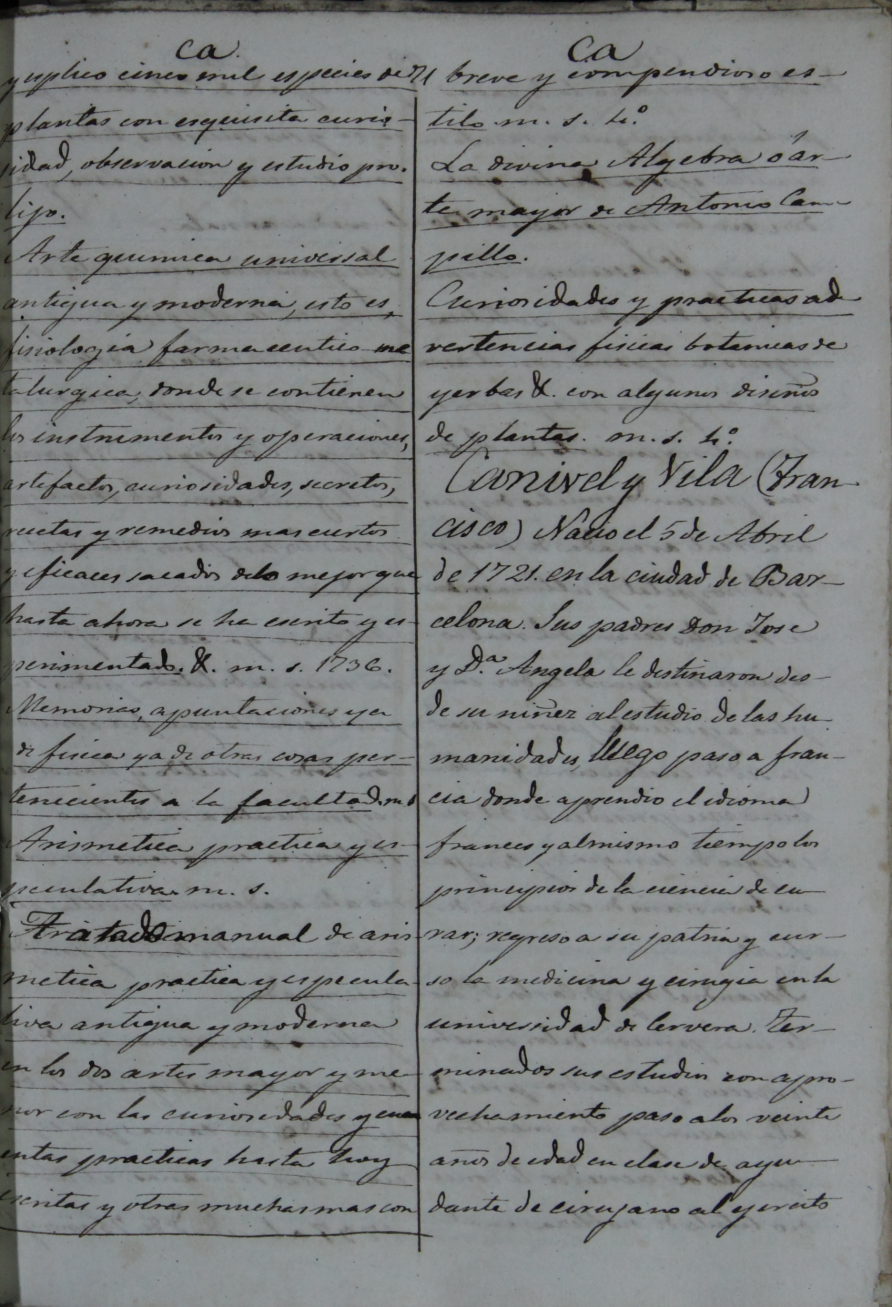 Ca
y esplico cinco mil especies de
plantas con esquisita curio-
sidad, observacion y estudio pro-
lijo.
Arte quimica universal
antigua y moderna, esto es,
fisiologia farmaceutico me
talurgica, donde se contienen
los instrumentos y operaciones,
artefactos, curiosidades, secretos,
recetas y remedios mas ciertos
y eficaces sacados de lo mejor que
hasta ahora se ha escrito y es-
perimentado. &. m. s. 1736.
Memorias, apuntaciones ya
de fisica ya de otras cosas per-
tenecientes a la facultad. m s
Arismetica practica y es-
peculativa. m. s.
Tratado manual de aris
metica practica y especula-
tiva antigua y moderna
en los dos artes mayor y me-
nor con las curiosidades y cuen
practicas hasta hoy
escritas y otras muchas mas con
Ca
breve y compendioso es-
tilo. m. s. 4.º
La divina Algebra ó ar-
te mayor de Antonio Cam-
pillo.
Curiosidades y practicas ad-
vertencias fisicas botanicas de
yerbas &. con algunos diseños
de plantas. m. s. 4.º
Canivel y Vila (Fran-
cisco) Nacio el 5 de Abril
de 1721. en la ciudad de Bar-
celona. Sus padres Don Jose
y D.ª Angela le destinaron des-
de su niñez al estudio de las hu-
manidades, luego paso a fran-
cia donde aprendio el idioma
frances y al mismo tiempo los
principios de la ciencia de cu-
rar; regreso a su patria y cur-
so la medicina y cirugia en la
universidad de Cervera. Ter-
minados sus estudios con apro-
vechamiento paso a los veinte
años de edad en clase de ayu-
dante de cirujano al ejercito